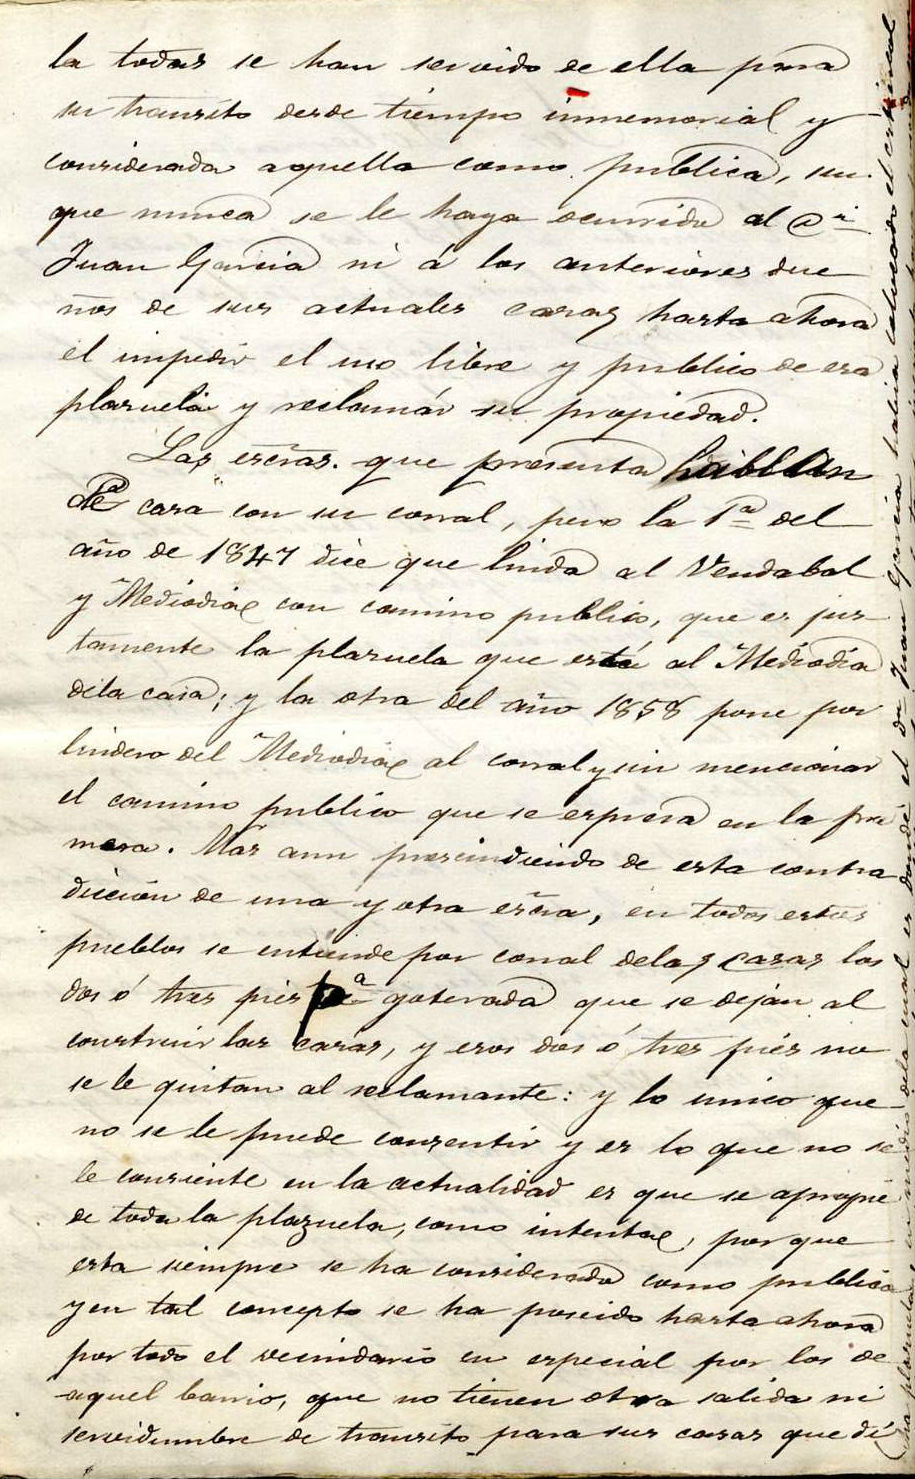 la todas se han servido de ella para
su transito desde tiempo inmemorial y
considerada aquella como publica, sin
que nunca se le haya ocurrido al Dn
Juan Garcia ni á los anteriores due
ños de sus actuales casas hasta ahora
el impedir el uso libre y publico de esa
plazuela y reclamár su propiedad.
Las escras. que presenta hablan
de casa con su corral, pero la 1a del
año de 1847 dice que linda al Vendabal
y Mediodia con camino publico, que es jus
tamente la plazuela que está al Mediodia
dela casa; y la otra del año 1858 pone por
lindero del Mediodia al corral y sin mencionar
el camino publico que se espresa en la pri
mera. Mas aun prescindiendo de esta contra
dicción de una y otra escra, en todos estos
pueblos se entiende por corral delas casas los
dos ó tres pies pa goterada que se dejan al
construir las casas, y esos dos ó tres piés no
se le quitan al reclamante: y lo unico que
no se le puede consentir y es lo que no se
le consiente en la actualidad es que se apropie
de toda la plazuela, como intenta, por que
esta siempre se ha considerado como publica
y en tal concepto se ha poseido hasta ahora
por todo el vecindario en especial por los de
aquel barrio, que no tienen otra salida ni
servidumbre de transito para sus casas que di
dela cual es donde el Dn Juan Garcia habia colocado el